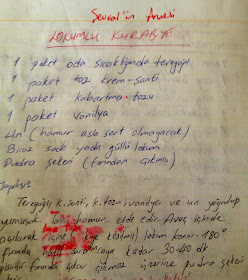 Sevcal'in Annesi
LOKUMLU KURABİYE
1 paket oda sıcaklığında tereyağı
1 paket toz krem-Şanti
1 paket kabartma tozu
1 paket vanilya
Un (hamur asla sert olmayacak)
Biraz sade yada güllü lokum
Pudra şekeri (fırından çıkınca)
Yapılışı
Tereyağı k.Şanti, k.tozu, vanilya ve un yoğrulup
yumuşak bir hamur elde edilir. Avuç içinde
açılarak içine küçük kesilmiş lokum konur. 180°
fırında hafif sararıncaya kadar 30-40 dk
pişirilir. Fırından çıkar çıkmaz üzerine pudra şekeri